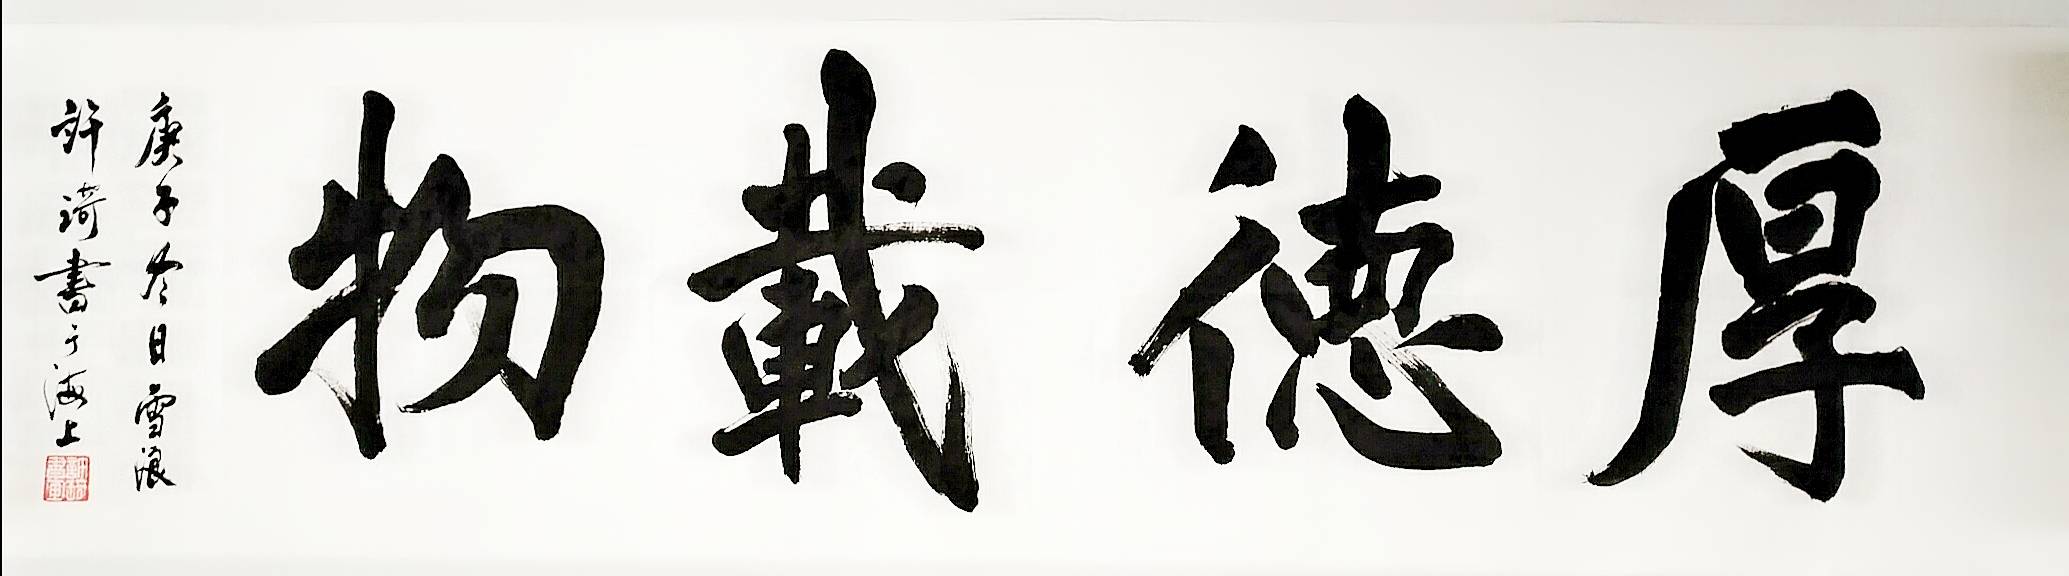 厚德載物
庚子冬日雪浪
許琦書于海上